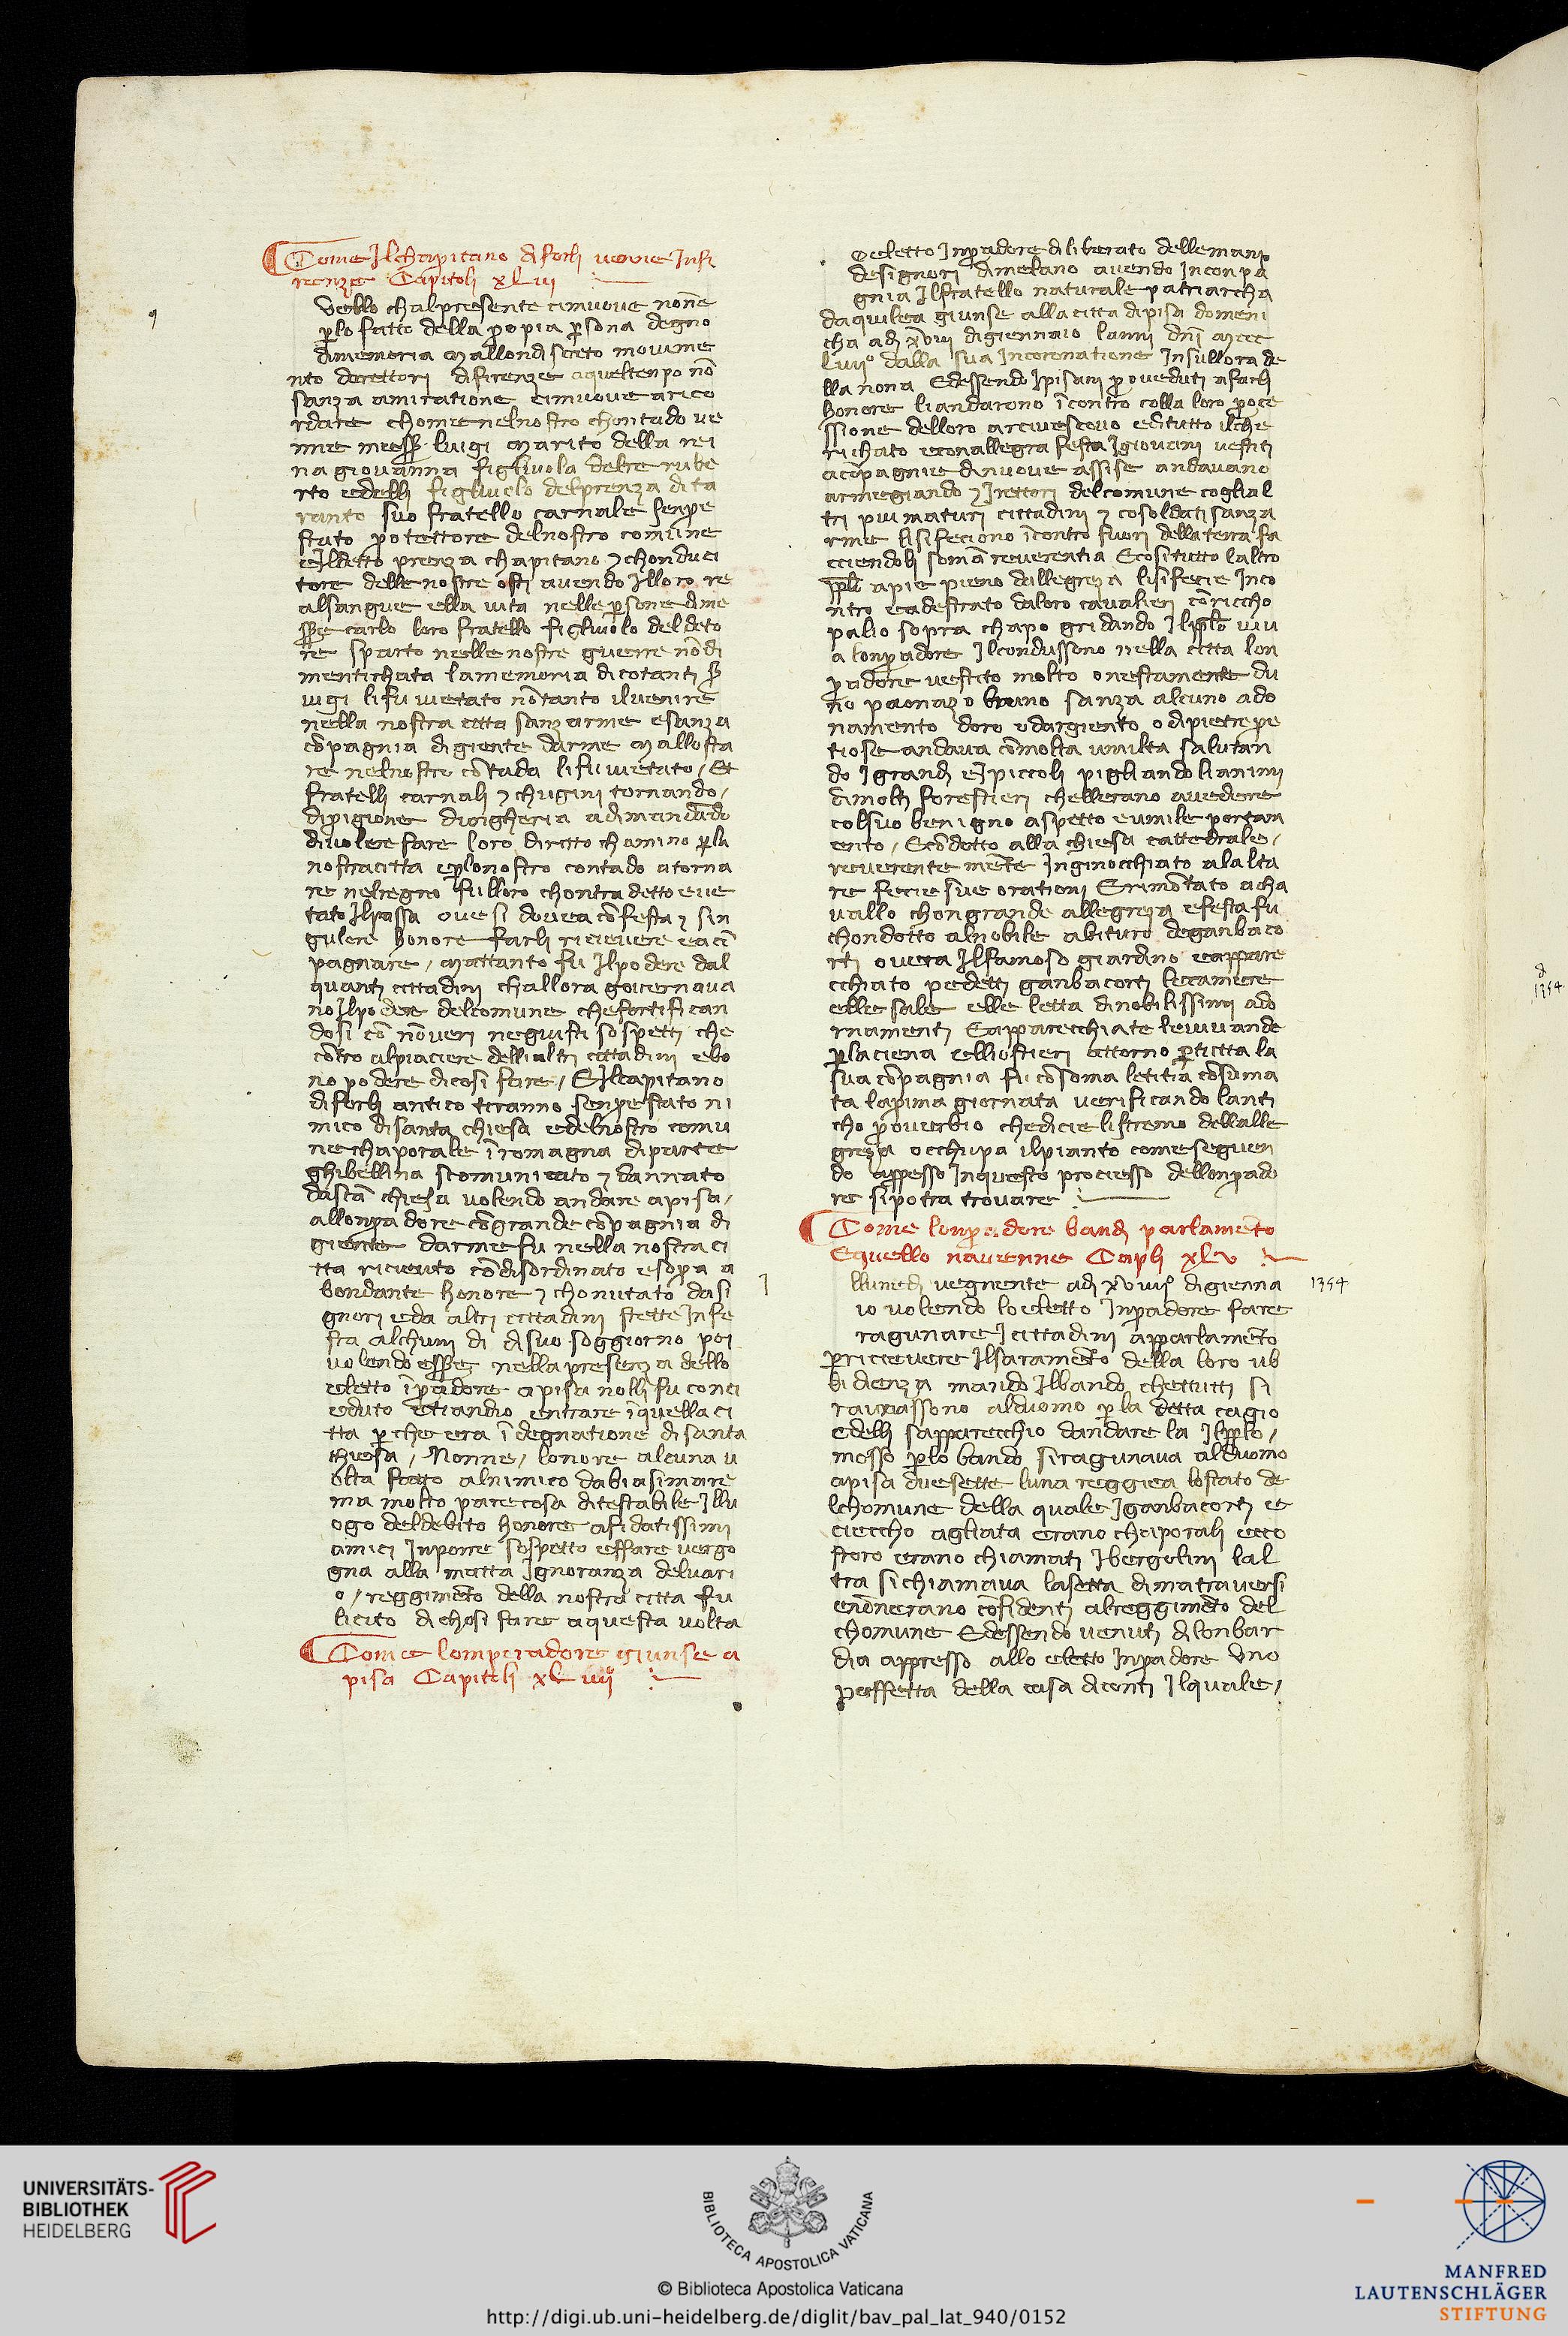 Come Jlchapitano di forlj venne Jnfi
renze Capitolj xLiij
vello chalpresente cimuove none
plo fatto della propia psona degno
dimemoria Mallondisceto movime
nto derettorj difirenze aqueltenpo nō
sanza amiratione cimuove arico
rdare chome nelnostro chontado ve
nne messer luigi marito della rei
na giovanna figliuola delre rube
rto edellj figliuolo delprenza di ta
ranto suo fratello carnale senpre
stato protettore delnostro comune
eJldetto prenza chapitano ⁊ chonduci
tore delle nostre osti avendo Jlloro re
alsangue ella vita nelle psone dime
sser carlo loro fratello figliuolo del deto
re sparto nelle nostre guerre nō di
mentichata lamemoria dicotanti ser
vigi li fu vietato nō tanto ilvenire
nella nostra citta sanzarme e sanza
cōpagnia digiente darme Mallosta
re nelnostro cōtado lifu vietato / Et
fratellj carnalj ⁊ chugini tornando /
diprigione dungheria adimandādo
divolere fare loro diritto chamino pla
nostra citta eplonostro contado atorna
re nelregno fulloro chontradetto eve
tato Jlpassa ove si dovea cōfesta ⁊ sin
gulere honore farlj ricievere eacō
pagnare / Mattanto fu Jlpodere dal
quanti cittadini challora governava
no Jlpodere delcomune chefortifican
dosi cō nōveri negiusti sospetti che
cōtro alpiacere dellialtri cittadini ebo
no podere dicosi fare / EJlcapitano
diforlj antico tiranno senprestato ni
mico disanta chiesa edelnostro comu
ne chaporale īromagna diparte
ghibellina scomunicato ⁊ dannato
dasctā chiesa volendo andare apisa /
allonpadore cōgrande cōpagnia di
giente darme fu nella nostra ci
tta ricievuto cōdisordinato esopra a
bondante honore ⁊ chonvitato dasi
gnori eda altri cittadini stette Jnfe
sta alchuni di disuo soggiorno poi
volendo essere nella presenza dello
eletto īpadore apisa nollj fu conci
eduto etiandio entrare īquella ci
tta pche era ī degnatione di santa
chiesa / Nonne / lonore alcuna v
olta fatto alnimico dabiasimare
ma molto pare cosa ditestabile Jllu
ogo deldebito honore afidatissimi
amici Jnporre sospetto effare vergo
gna alla matta Jgnoranza deluari
o / reggimēto della nostra citta fu
licito di chosi fare aquesta volta
Come lomperadore giunse a
pisa Capitolj xLiiij
Oeletto Jnpadore diliberato dellemani
designorj dimelano avendo Jnconpa
gnia Jlfratello naturale patriarcha
daquilea giunse alla citta dipisa domeni
cha adj xviij digiennaio lanni dnī Mccc
Liiijº dalla sua Jncoronatione Jnsullora de
lla nona Edessendo Jpisani proveduti afarlj
honore liandarono īcontro colla loro proce
ssione delloro arcivescovo editutto ilche
richato econallegra festa Jgiovani vestiti
acōpagnie dinuove assise andavano
armegiando ⁊ Jrettorj delcomune coglial
tri piu maturj cittadini ⁊ cosoldati sanza
rme lisifeciono īcontro fuorj dellaterra fa
cciendolj somā reverentia Ecositutto laltro
pplo apie pieno dallegreza lisifecie Jnco
ntro eadestrato daloro cavalieri cōriccho
palio sopra chapo gridando Jlpplo viv
a lonpadore Jlcondussono nella citta lon
padore vestito molto onestamente du
no paonazo bruno sanza alcuno ado
namento doro odargiento odipietre pre
tiose andava cōmolta umilta salutan
do Jgrandi eJpiccolj pigliando lianimi
dimolti forestieri chellerano avedere
colsuo benigno aspetto eumile portam
ento / Ecōdotto alla chiesa cattedrale /
reverente mēte Jnginocchiato alalta
re fecie sue orationi Erimōtato acha
vallo chongrande allegreza efesta fu
chondotto alnobile abituro deganbaco
rti overa Jlfamoso giardino eappare
cchiato pedetti ganbacorti lecamere
elle sale elle letta dinobilissimi ado
rnamenti Eapparecchiate levivande
placiena elliostieri attorno ptutta la
sua cōpagnia fu cōsoma letitia cōsuma
ta laprima giornata verificando lanti
cho proverbio chedicie listremo dellalle
greza occhupa ilpianto come seguen
do appresso Jnquesto prociesso dellonpado
re sipotra trovare
Come lonpadore bandj parlamēto
Equello navenne Caplj xLv
lluned vegnente adj xviiijº digienna
io volendo loeletto Jnpadore fare
ragunare Jcittadini apparlamēto
pricievere Jlsaramēto della loro ub
bidienza mando Jlbando chettutti si
raunassono alduomo pla detta cagio
edellj sapparecchio dandare la Jlpplo /
mosso plo bando siragunava alduomo
apisa duesette luna reggiea lostato de
lchomune della quale Jganbacorti e
ciecho agliata erano chaporalj ecco
storo erano chiamati Jbergolini lal
tra sichiamava lasetta dimatraversi
enōnerano cōfidenti alreggimēto del
chomune Edessendo venuti dilonbar
dia appresso allo eletto Jnpadore Uno
paffetta della casa diconti Jlquale /
1354
1354
UNIVERSITÄTS-
BIBLIOTHEK
HEIDELBERG
BIBLIOTECA APOSTOLICA VATICANA
© Biblioteca Apostolica Vaticana
http://digi.ub.uni-heidelberg.de/diglit/bav_pal_lat_940/0152
MANFRED
LAUTENSCHLÄGER
STIFTUNG